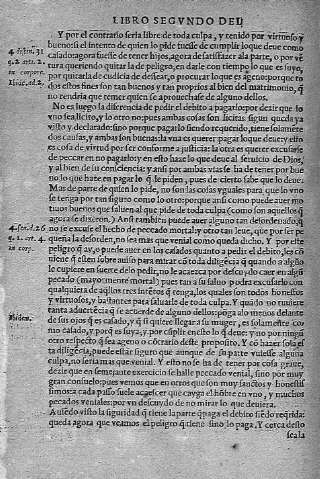 LIBRO SEGVNDO DEL
Y por el contrario seria libre de toda culpa, y tenido por virtuoso y
bueno si el intento de quien lo pide fuesse de cumplir lo que deue como
casado: agora fuesse de tener hijos, agora de satisfazer a la parte, o por ve
tura queriendo quitarla de peligro, en darle con tiempo lo que es suyo,
por quitarla de cudicia de dessear, o procurar lo que es ageno: porque to
dos estos fines son tan buenos y tan proprios al bien del matrimonio, q̃
no rendria que temer quien se aprouechasse de alguno dellos.
No es luego la diferencia de pedir el debito a pagarlo: por dezir que lo
vno sea licito, y lo otro no: pues ambas cosas son licitas segun queda ya
visto y declarado: sino porque pagarlo siendo requerido, tiene solamẽte
dos causas, y ambas son buenas: la vna es querer pagar lo que deue: y esto
es cosa de virtud por ser conforme a justicia: la otra es querer escusarse
de peccar en no pagarlo: y en esto haze lo que deue al seruicio de Dios,
y al bien de su conciencia: y ansi por ambas vias se ha de tener por bue
no lo que haze en pagarle lo q̃ le piden, pues de cierto sabe que lo deue.
Mas de parte de quien lo pide, no son las cosas yguales para que lo vno
se tenga por tan siguro como lo otro: porque ansi como puede auer mo
tiuos buenos que saluen al que pide de toda culpa (como son aquellos q̃
agora se dixeron.) Ansi tambien puede auer alguno tan desordenado, q̃
no le escuse el hecho de peccado mortal: y otro tan leue, que por ser pe
queña la desorden, no sea mas que venial como queda dicho. Y por este
peligro q̃ ay, o puede auer en los casados quanto a pedir el debito, les cõ
uiene q̃ estẽ sobre auiso para mirar cõ toda diligẽcia q̃ quando a algũo
le cupiere en suerte del o pedir, no le acaezca por descuydo caer en algũ
pecado (mayormente mortal) pues tan a su saluo podra escusarlo con
qualquiera de aq̃llos tres intẽtos q̃ tenga, los quales son todos honestos
y virtuosos, y bastantes para saluarle de toda culpa. Y quãdo no tuuiere
tanta aduertẽcia q̃ se acuerde de alguno dellos: põga alo menos delante
de sus ojos q̃ es casado, y q̃ si quiere llegar a su muger, es solamẽte co-
mo casado, y por q̃ es suya, y por cũplir en esto lo q̃ deue: y no por ningũ
otro respecto q̃ sea ageno o cõtrario deste proposito. Y cõ hazer sola es
ta diligẽcia, puede estar siguro que aunque de su parte vuiesse alguna
culpa, no seria mas que venial. Y esto no se ha de tener por cosa graue,
dezir que en semejante exercicio se halle peccado venial, sino por muy
gran consuelo: pues vemos que en otros que son muy sanctos y honestis
simos a cada passo suele acaescer que cayga el hõbre en vno, y muchos
pecados veniales: por vn descuydo de no mirar lo que deuiera.
Auiẽdo visto la siguridad q̃ tiene la parte q̃ paga el debito siẽdo req̃rida:
queda agora que veamos el peligro q̃ tiene sino lo paga. Y cerca desto
seala
4. distin. 31
q. 2. artic. 2.
in corpore.
Ibidẽ. ad. 2.
4. sent. d. 26
q. 1. art. 4.
in cor.
Ibidem.